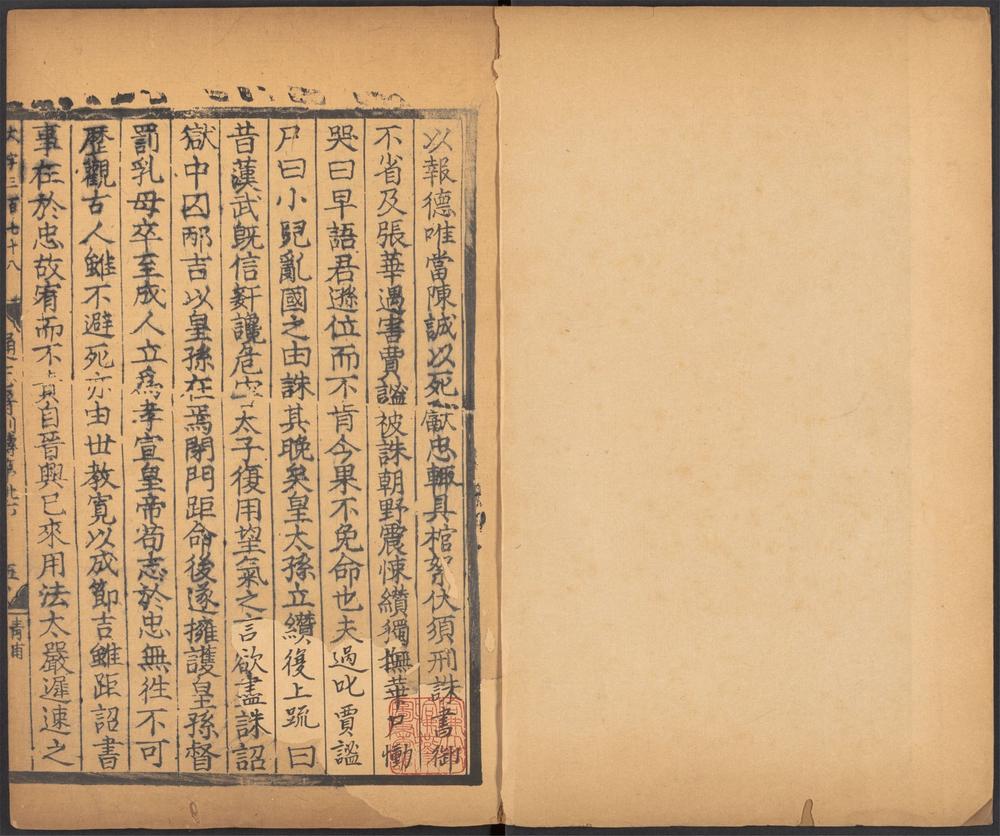 以報德唯當陳誠以死獻忠輒具棺絮伏須刑誅書御
不省及張華遇害賈謐被誅朝野震悚纘獨撫華尸慟
哭曰早語君遜位而不肯今果不免命也夫過叱賈謐
尸曰小兒亂國之由誅其晚矣皇太孫立纘復上疏曰
昔漢武旣信姧讒危害太子復用望氣之言欲盡誅詔
獄中囚邴吉以皇孫在焉閉門距命後遂擁護皇孫督
罰乳母卒至成人立爲孝宣皇帝苟志於忠無徃不可
歷觀古人雖不避死亦由世教寛以成節吉雖距詔書
事在於忠故宥而不責自晉興已來用法太嚴遲速之
大字三百七十八 通志 列傳 五 青甫